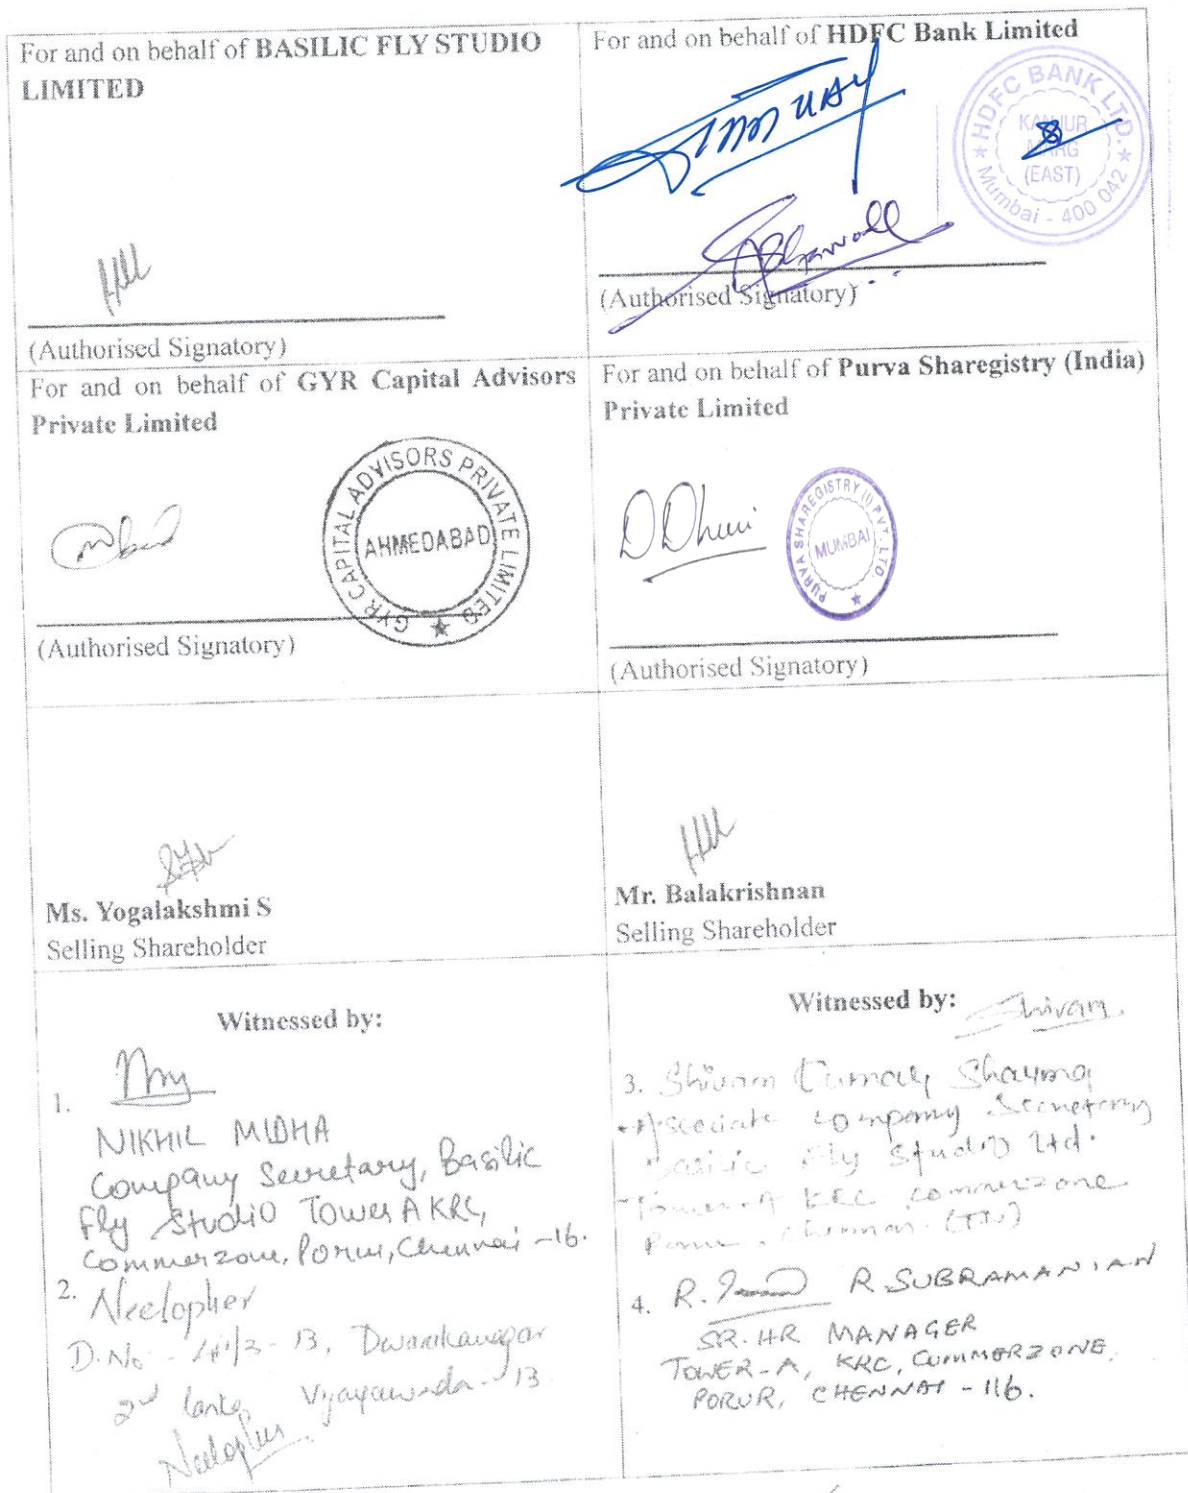 For and on behalf of BASILIC FLY STUDIO
LIMITED
(Authorised Signatory)
For and on behalf of HDFC Bank Limited
HDFC BANK LTD.
KANJUR
MARG
(EAST)
Mumbai - 400 042
(Authorised Signatory)
For and on behalf of GYR Capital Advisors
Private Limited
GYR CAPITAL ADVISORS PRIVATE LIMITED
AHMEDABAD
(Authorised Signatory)
For and on behalf of Purva Sharegistry (India)
Private Limited
D Dhuri
PURVA SHAREGISTRY (I) PVT. LTD.
MUMBAI
(Authorised Signatory)
Ms. Yogalakshmi S
Selling Shareholder
Mr. Balakrishnan
Selling Shareholder
Witnessed by:
1.
NIKHIL MIDHA
Company Secretary, Basilic
Fly Studio Tower A KRC,
Commerzone, Porur, Chennai -16.
2. Neelopher
D.No - 13, Dwarakanagar
2nd Vijayawada - 13
Neelopher
Witnessed by:
Shivam
3. Shivam Kumar Sharma
Associate Company Secretary
Basilic Fly Studio Ltd.
Tower-A KRC Commerzone
Porur, Chennai (TN)
4. R. R. SUBRAMANIAN
SR. HR MANAGER
TOWER-A, KRC, COMMERZONE,
PORUR, CHENNAI - 116.